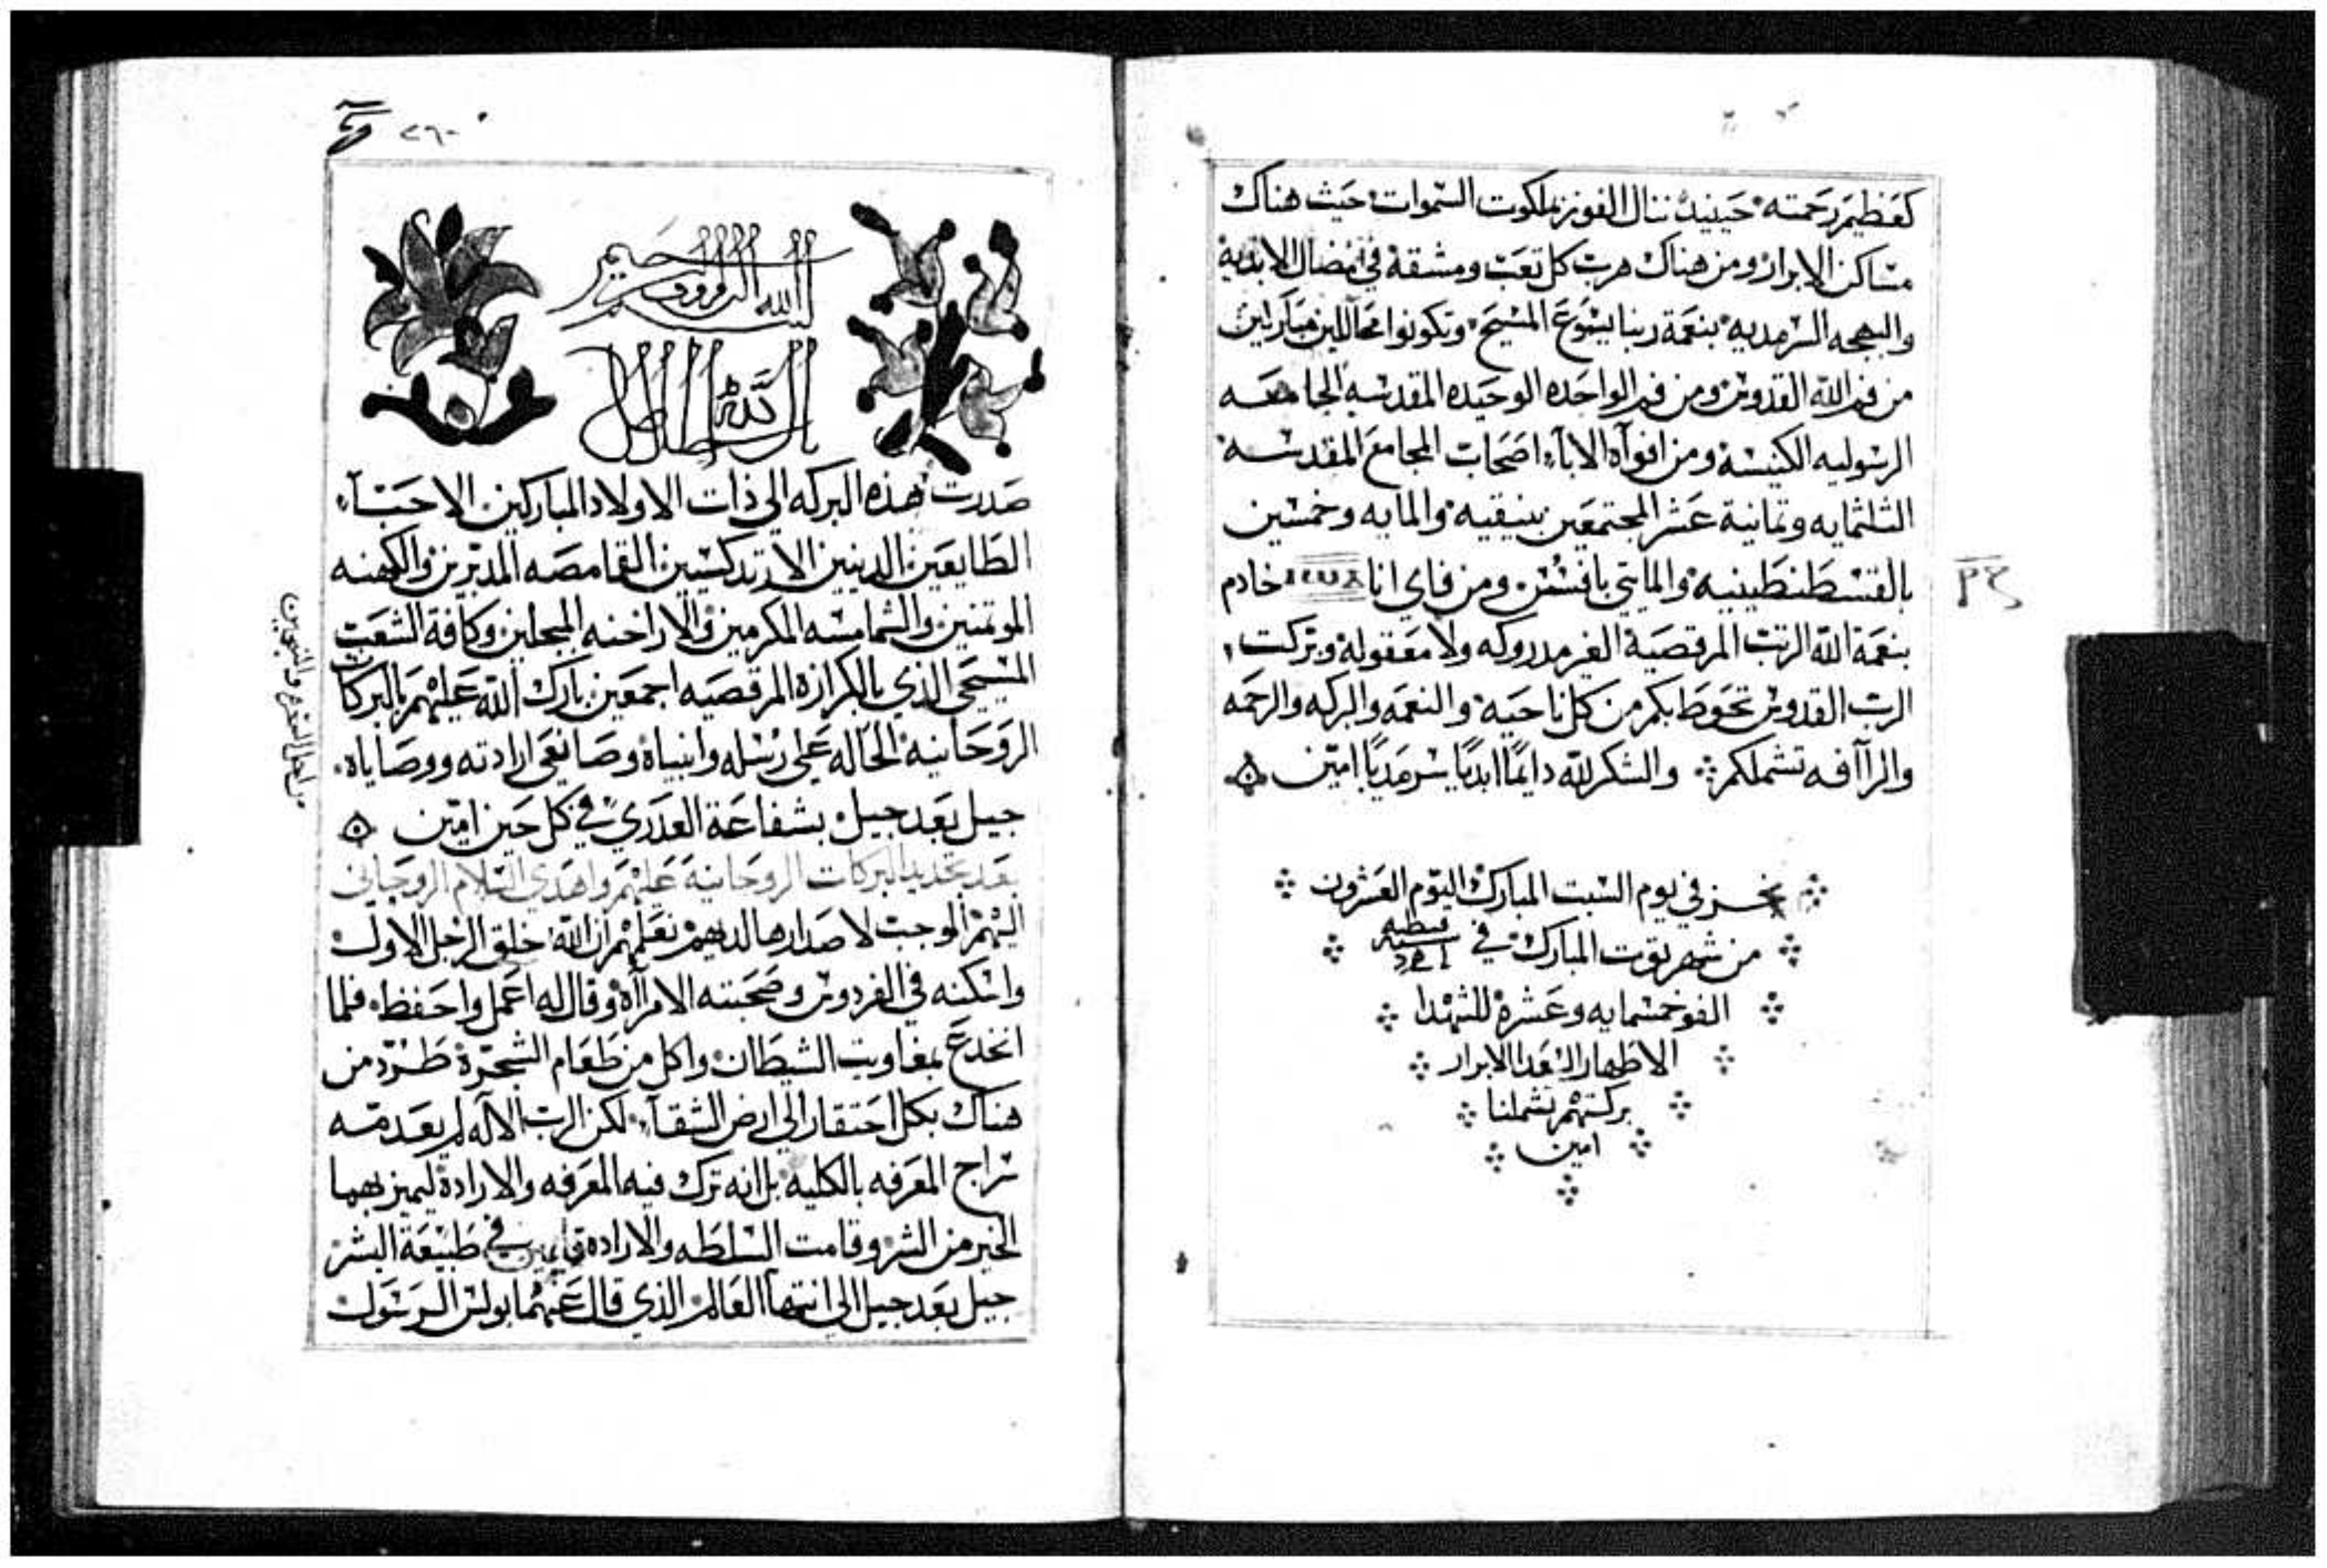 كعظيم رحمته حينيد ننال الفوز بملكوت السموات حيث هناك
مساكن الابرار ومن هناك هرب كل تعب ومشقة في الابديه
والبهجه السرمديه بنعمة ربنا يسوع المسيح وتكونوا محاللين مباركين
من فم الله القدوس ومن فم الواحده الوحيده المقدسه الجامعه
الرسوليه الكنيسه ومن افوآه الابآء اصحاب المجامع المقدسه
الثلثمايه وثمانية عشر المجتمعين بنيقيه والمايه وخمسين
بالقسطنطينيه والمايتي بافسس ومن فاي انا خادم
بنعمة الله الرتب المرقصية الغير مدروكه ولا معقوله وبركت
الرب القدوس تحوط بكم من كل ناحيه والنعمه والبركه والرحمه
والرآافه تشملكم والشكر لله دايمًا ابديًا سرمديًا امين
نجز في يوم السبت المبارك اليوم العشرون
من شهر توت المبارك في سنة قبطيه
الف وخمسمايه وعشرة للشهدا
الاطهار السعدا الابرار
بركتهم تشملنا
امين
٢٦٠
بسم الله الرووف الرحيم
صدرت هذه البركه الي ذات الاولاد المباركين الاحبآء
الطايعين الدينين الارتدكسيين القامصه المدبرين والكهنه
الموتمنين والشمامسه المكرمين والاراخنه المبجلين وكافة الشعب
المسيحي الذي بالكرازة المرقصيه اجمعين بارك الله عليهم بالبركات
الروحانيه الحاله علي رسله وانبياه وصانعي ارادته ووصاياه
جيل بعد جيل بشفاعة العدري في كل حين امين
بعد تجديد البركات الروحانية عليهم واهدي السلام الروحاني
اليهم الموجب لاصدارها لديهم نعلمهم ان الله خلق الرجل الاول
واسكنه في الفردوس وصحبته الامرآاة وقال له اعمل واحفظ فلما
انخدع بمغاويت الشيطان واكل من طعام الشجرة طرد من
هناك بكل احتقار الي ارض الشقآء لكن الرب الاله لم يعدمه
سراج المعرفه بالكليه بل انه ترك فيه المعرفه والارادة ليميز بهما
الخير من الشر وقامت السلطه والاراده قايمين في طبيعة البشر
جيل بعد جيل الي انتهآ العالم الذي قال عنهما بولس الرسول